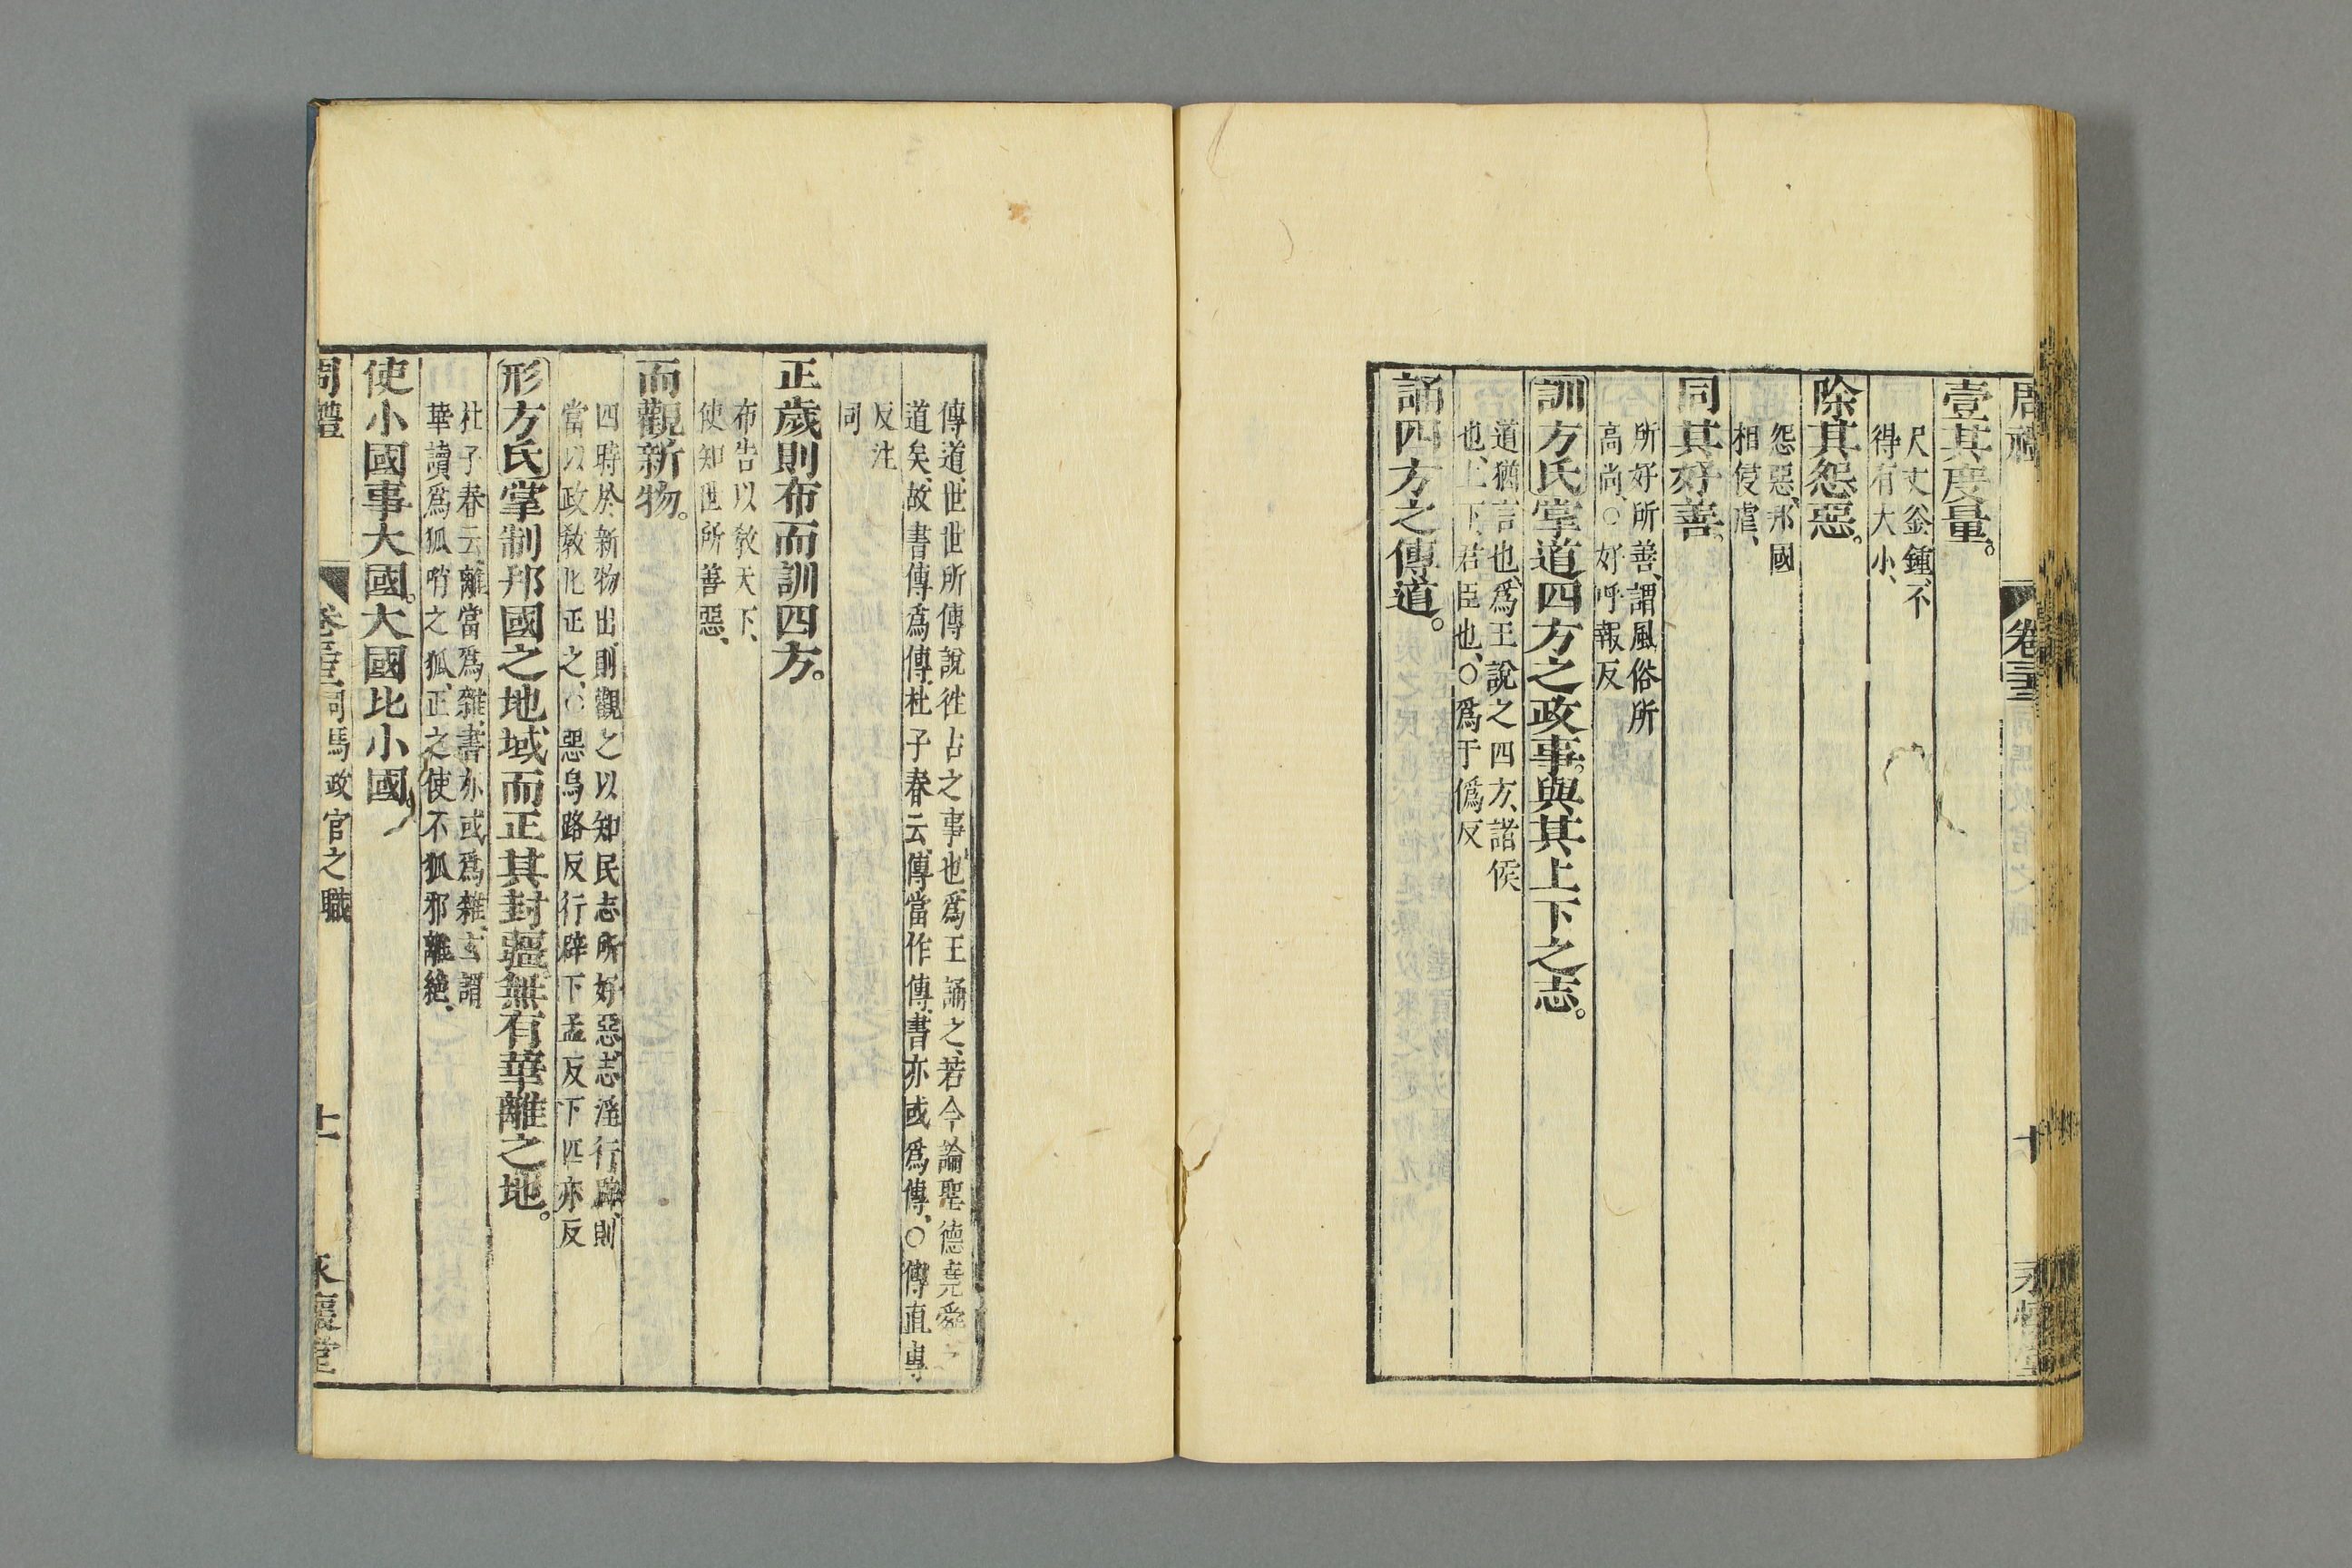 周禮
卷三十三
十
永懷堂
壹其度量。
尺丈釜鍾、不
得有大小、
除其怨惡。
怨惡、邦國
相侵虐、
同其好善。
所好所善、謂風俗所
高尚、○好呼報反
訓方氏掌道四方之政事。與其上下之志。
道猶言也、爲王說之四方、諸侯
也、上下、君臣也、○爲于僞反
誦四方之傳道。
傳道、世世所傳說往古之事也、爲王誦之、若今論聖德堯舜之
道矣、故書傳爲傅、杜子春云、傅當作傳、書亦或爲傳、○傳直專
反注
同
正歲則布而訓四方。
布告以敎天下、
使知世所善惡、
而觀新物。
四時於新物出、則觀之以知民志所好惡、志淫行辟、則
當以政敎化正之、○惡烏路反行辟下孟反下匹亦反
形方氏掌制邦國之地域而正其封疆無有華離之地。
杜子春云、離當爲雜、書亦或爲雜、玄謂
華讀爲㼌哨之㼌、正之使不㼌邪離絶、
使小國事大國。大國比小國。
周禮
司馬政官之職
十一
永懷堂